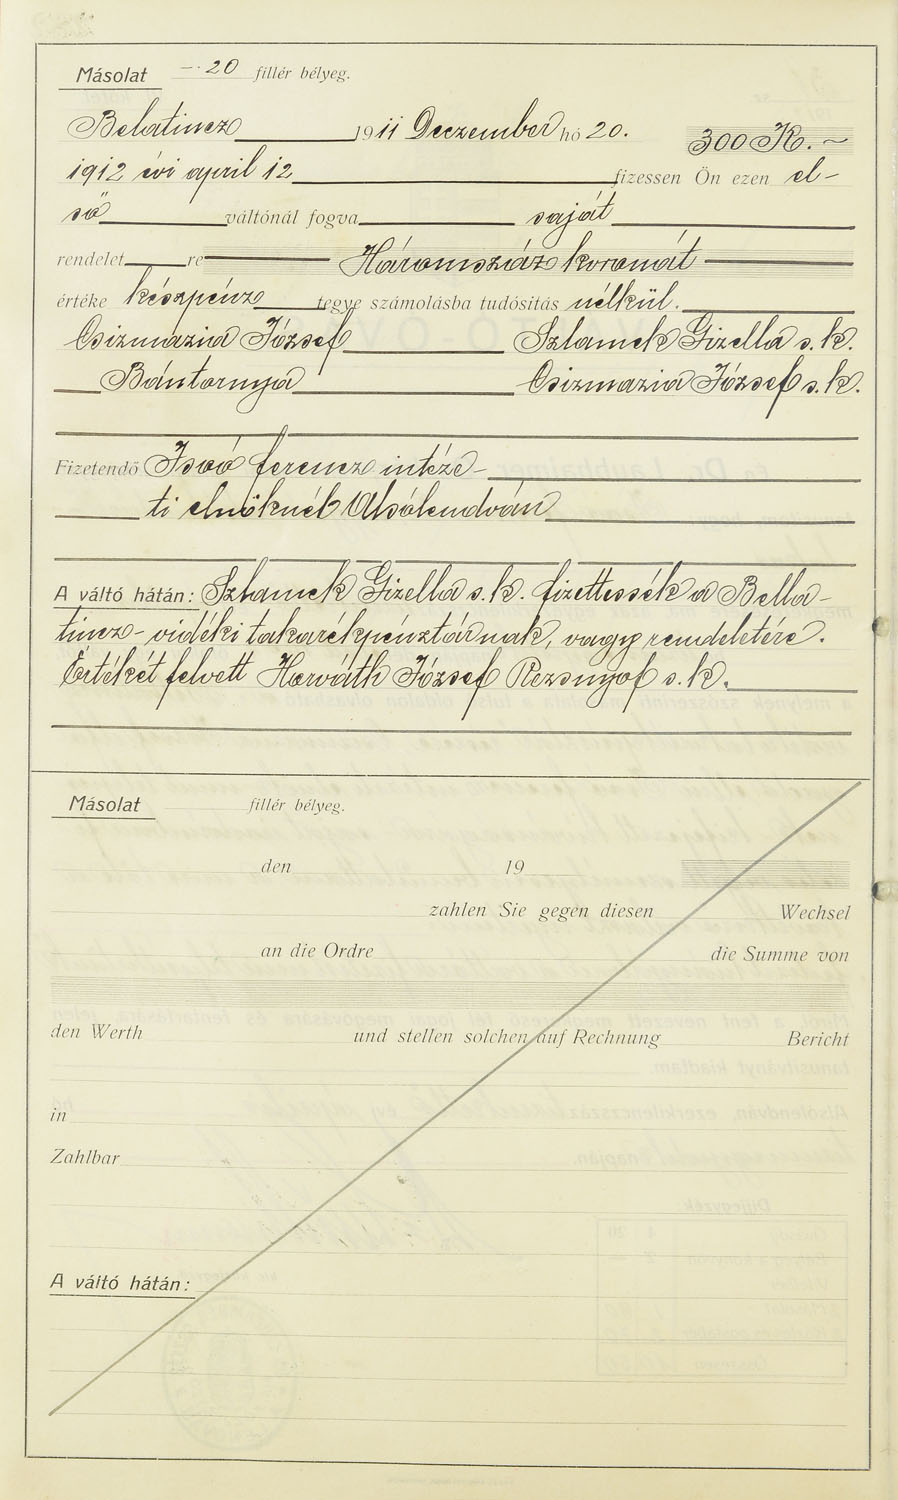 Másolat —·20 fillér bélyeg.
Belatincz 1911 Deczember hó 20. 300 K. ~
1912 évi april 12 fizessen Ön ezen el-
ső váltónál fogva saját
rendelet re Háromszáz koronát
értéke készpénz tegye számolásba tudósitás nélkül.
Csizmazia József Szlamek Gizella s.k.
Bántornya Csizmazia József s.k.
Fizetendő Isoó ferencz intéze-
ti elnöknél Alsólendván
A váltó hátán: Szlamek Gizella s.k. fizettessék a Bella-
tincz-vidéki takarékpénztárnak, vagy rendeletére.
Értékét felvett Horváth József Rezsnyof s.k.
Másolat fillér bélyeg.
den 19
zahlen Sie gegen diesen Wechsel
an die Ordre die Summe von
den Werth und stellen solchen auf Rechnung Bericht
in
Zahlbar
A váltó hátán: